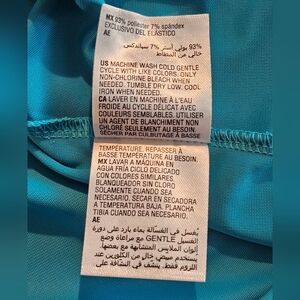 MX 93% poliéster 7% spándex
EXCLUSIVO DEL ELÁSTICO
AE
93% بولي أستر 7% سباندكس
خالي من المطاط
US MACHINE WASH COLD GENTLE
CYCLE WITH LIKE COLORS. ONLY
NON-CHLORINE BLEACH WHEN
NEEDED. TUMBLE DRY LOW. COOL
IRON WHEN NEEDED.
CA LAVER EN MACHINE À L'EAU
FROIDE AU CYCLE DÉLICAT AVEC
COULEURS SEMBLABLES. UTILISER
UN AGENT DE BLANCHIMENT NON
CHLORÉ SEULEMENT AU BESOIN.
SÉCHER PAR CULBUTAGE À BASSE
TEMPÉRATURE. REPASSER À
BASSE TEMPÉRATURE AU BESOIN.
MX LAVAR A MÁQUINA EN
AGUA FRÍA CICLO DELICADO
CON COLORES SIMILARES.
BLANQUEADOR SIN CLORO
SOLAMENTE CUANDO SEA
NECESARIO. SECAR EN SECADORA
A TEMPERATURA BAJA. PLANCHA
TIBIA CUANDO SEA NECESARIO.
AE
يُغسل في الغسالة بماء بارد على دورة
الغسيل GENTLE مع مراعاة وضع
ألوان الملابس المتشابهة مع بعضها.
يستخدم مبيض خالي من الكلورين عند
اللزوم فقط. يُنشف في النشافة على